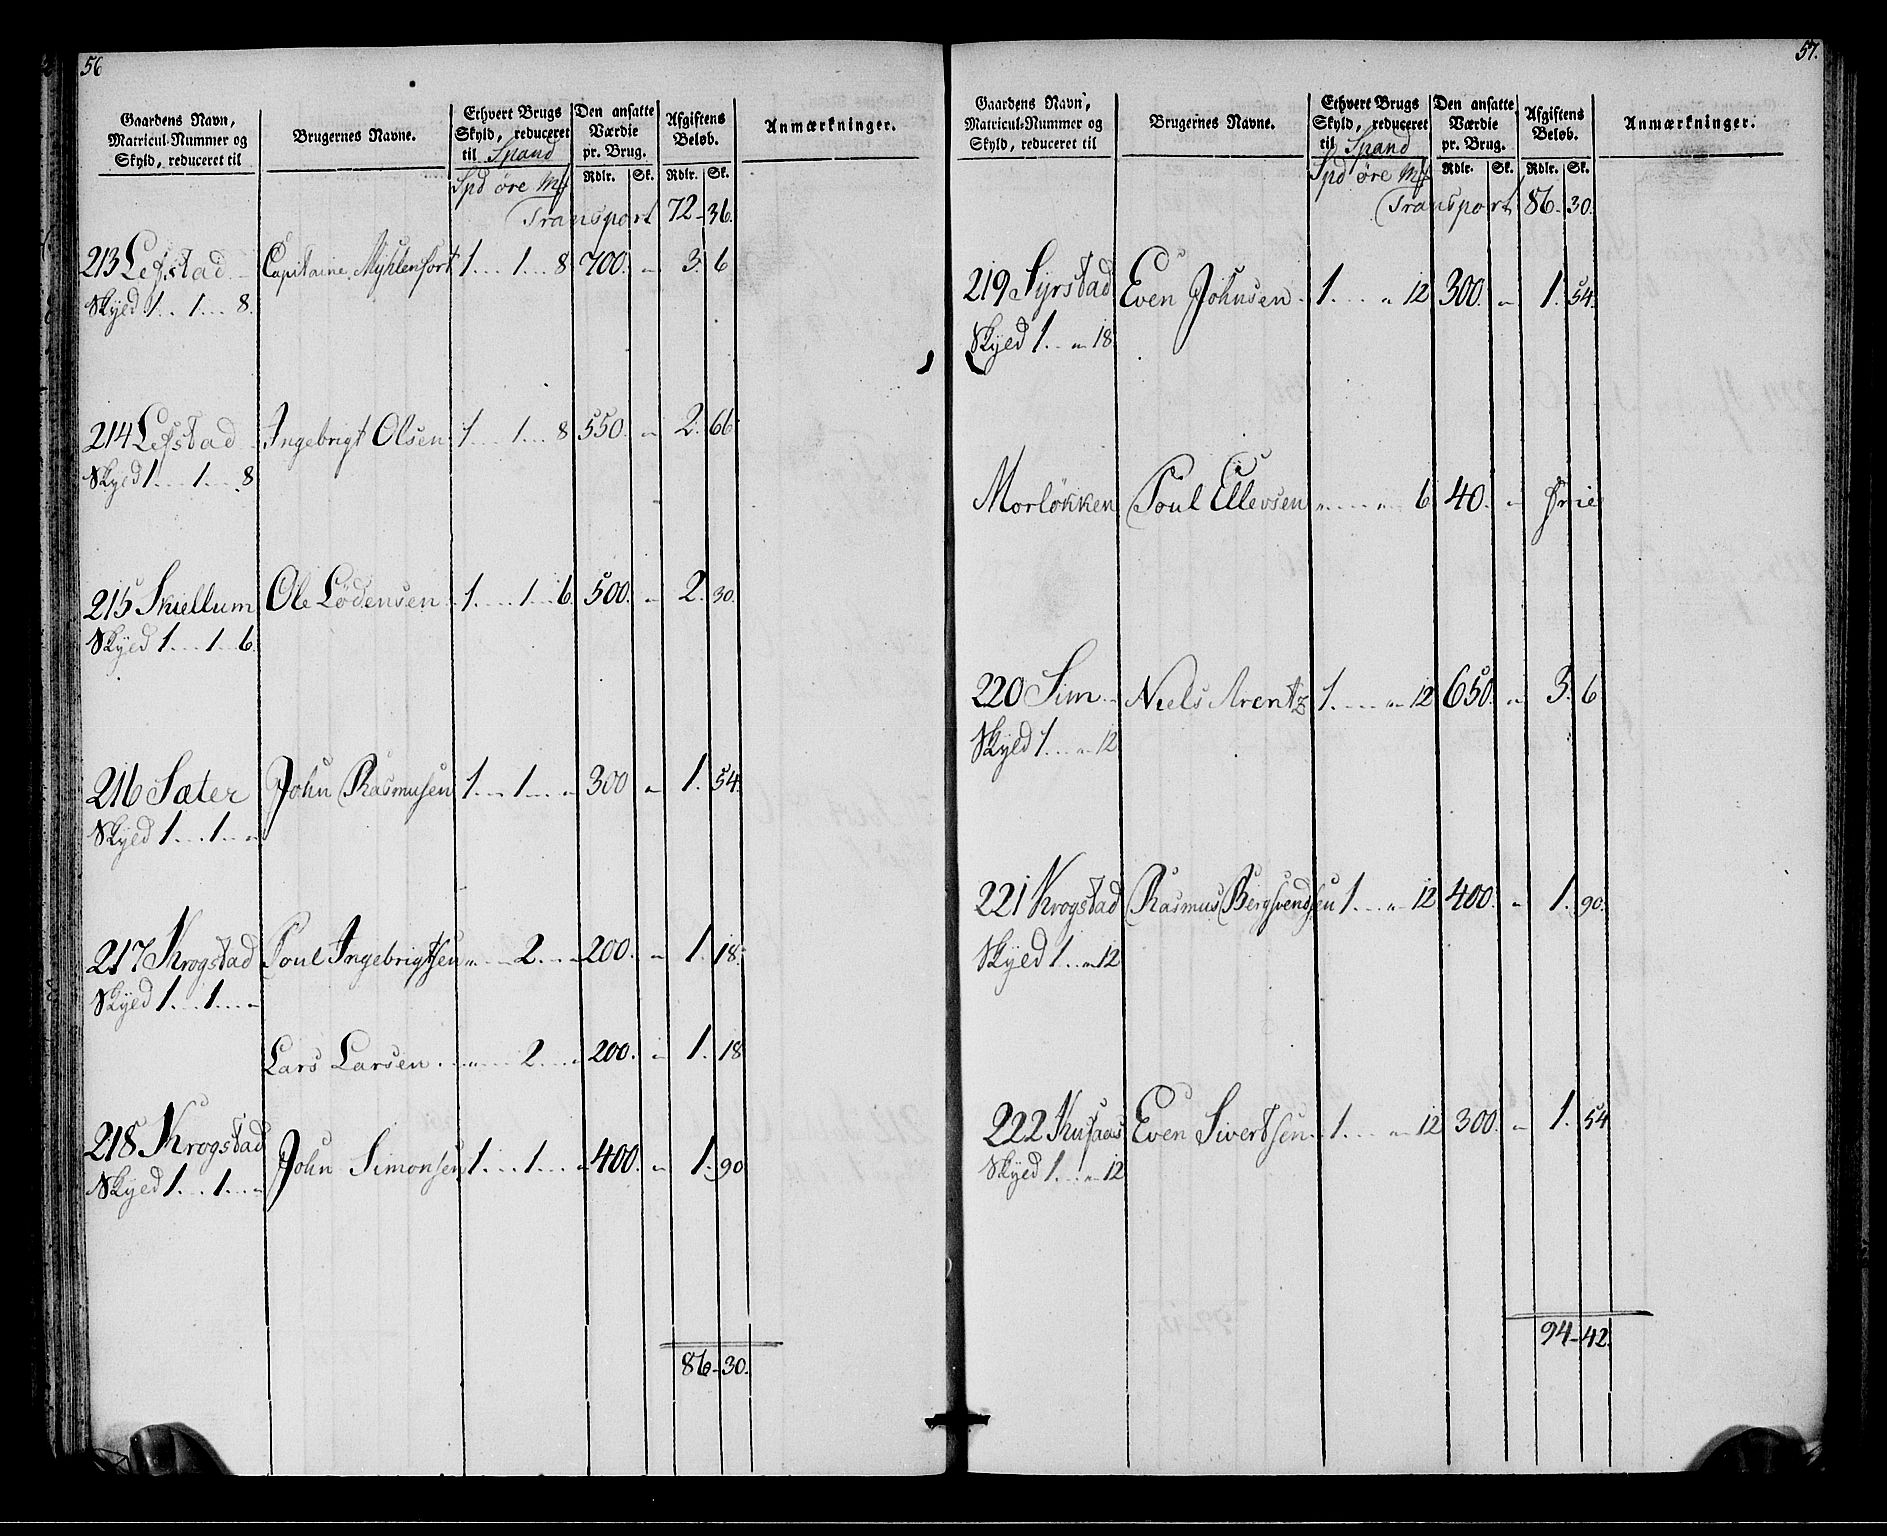 56
Gaardens Navn, Matricul-Nummer og Skyld, reduceret til
Brugernes Navne.
Ethvert Brugs Skyld, reduceret til Spand
Den ansatte Værdie pr. Brug.
Afgiftens Beløb.
Anmærkninger.
Spd øre Mk Rdlr. Sk. Rdlr. Sk.
Transport 72 - 36.
213 Lefstad Capitaine Myhlenfort 1 .... 1 ... 8 700. " 3. 6
Skyld 1 .. 1 ... 8.
214 Lefstad Ingebrigt Olsen 1 .... 1 ... 8 550. " 2. 66
Skyld 1 ... 1 ... 8
215 Skiellum Ole Lødensen 1 .... 1 ... 6 500. " 2. 30.
Skyld 1 ... 1 ... 6.
216 Sæter John Rasmusen 1 ... 1 ... " 300 " 1. 54.
Skyed 1 ... 1 ... "
217 Krogstad Poul Ingebrigtsen " ... 2 ... " 200. " 1. 18.
Skyed 1 ... 1 ... "
Lars Larsen ... " ... 2 ... " 200. " 1. 18
218 Krogstad John Simonsen 1 ... 1 ... " 400. " 1. 90
Skyed 1 ... 1 ... "
86 - 30.
57.
Gaardens Navn, Matricul-Nummer og Skyld, reduceret til
Brugernes Navne.
Ethvert Brugs Skyld, reduceret til Spand
Den ansatte Værdie pr. Brug.
Afgiftens Beløb.
Anmærkninger.
Spd øre Mk Rdlr. Sk. Rdlr. Sk.
Transport 86. 30.
219 Syrstad Even Johnsen 1 .... " 12 300. " 1. 54.
Skyed 1 .. " 18.
Morløkken Poul Ellevsen " .... " 6 40. "
220 Sim Niels Arentz 1 .... " 12 650. " 3. 6
Skyld 1 ... " 12
221 Krogstad Rasmus Bergsvendsen 1 ... " 12 400. " 1. 90.
Skyed 1 .. " 12
222 Kusaas Even Sivertsen 1 .... " 12 300. " 1. 54
Skyed 1 ... " 12
94 - 42.